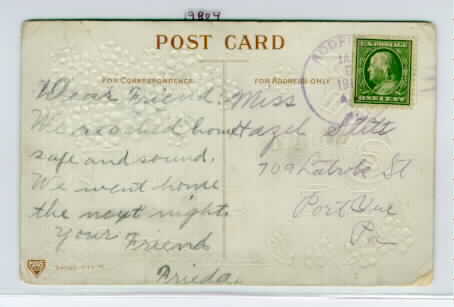 19804
POST CARD
FOR CORRESPONDENCE
FOR ADDRESS ONLY
Dear Friend:
We reached home
safe and sound.
We went home
the next night.
Your
Friend
Frieda.
Miss
Hazel
709 Latrobe St
Port Vue
Pa
U.S. POSTAGE
ONE CENT